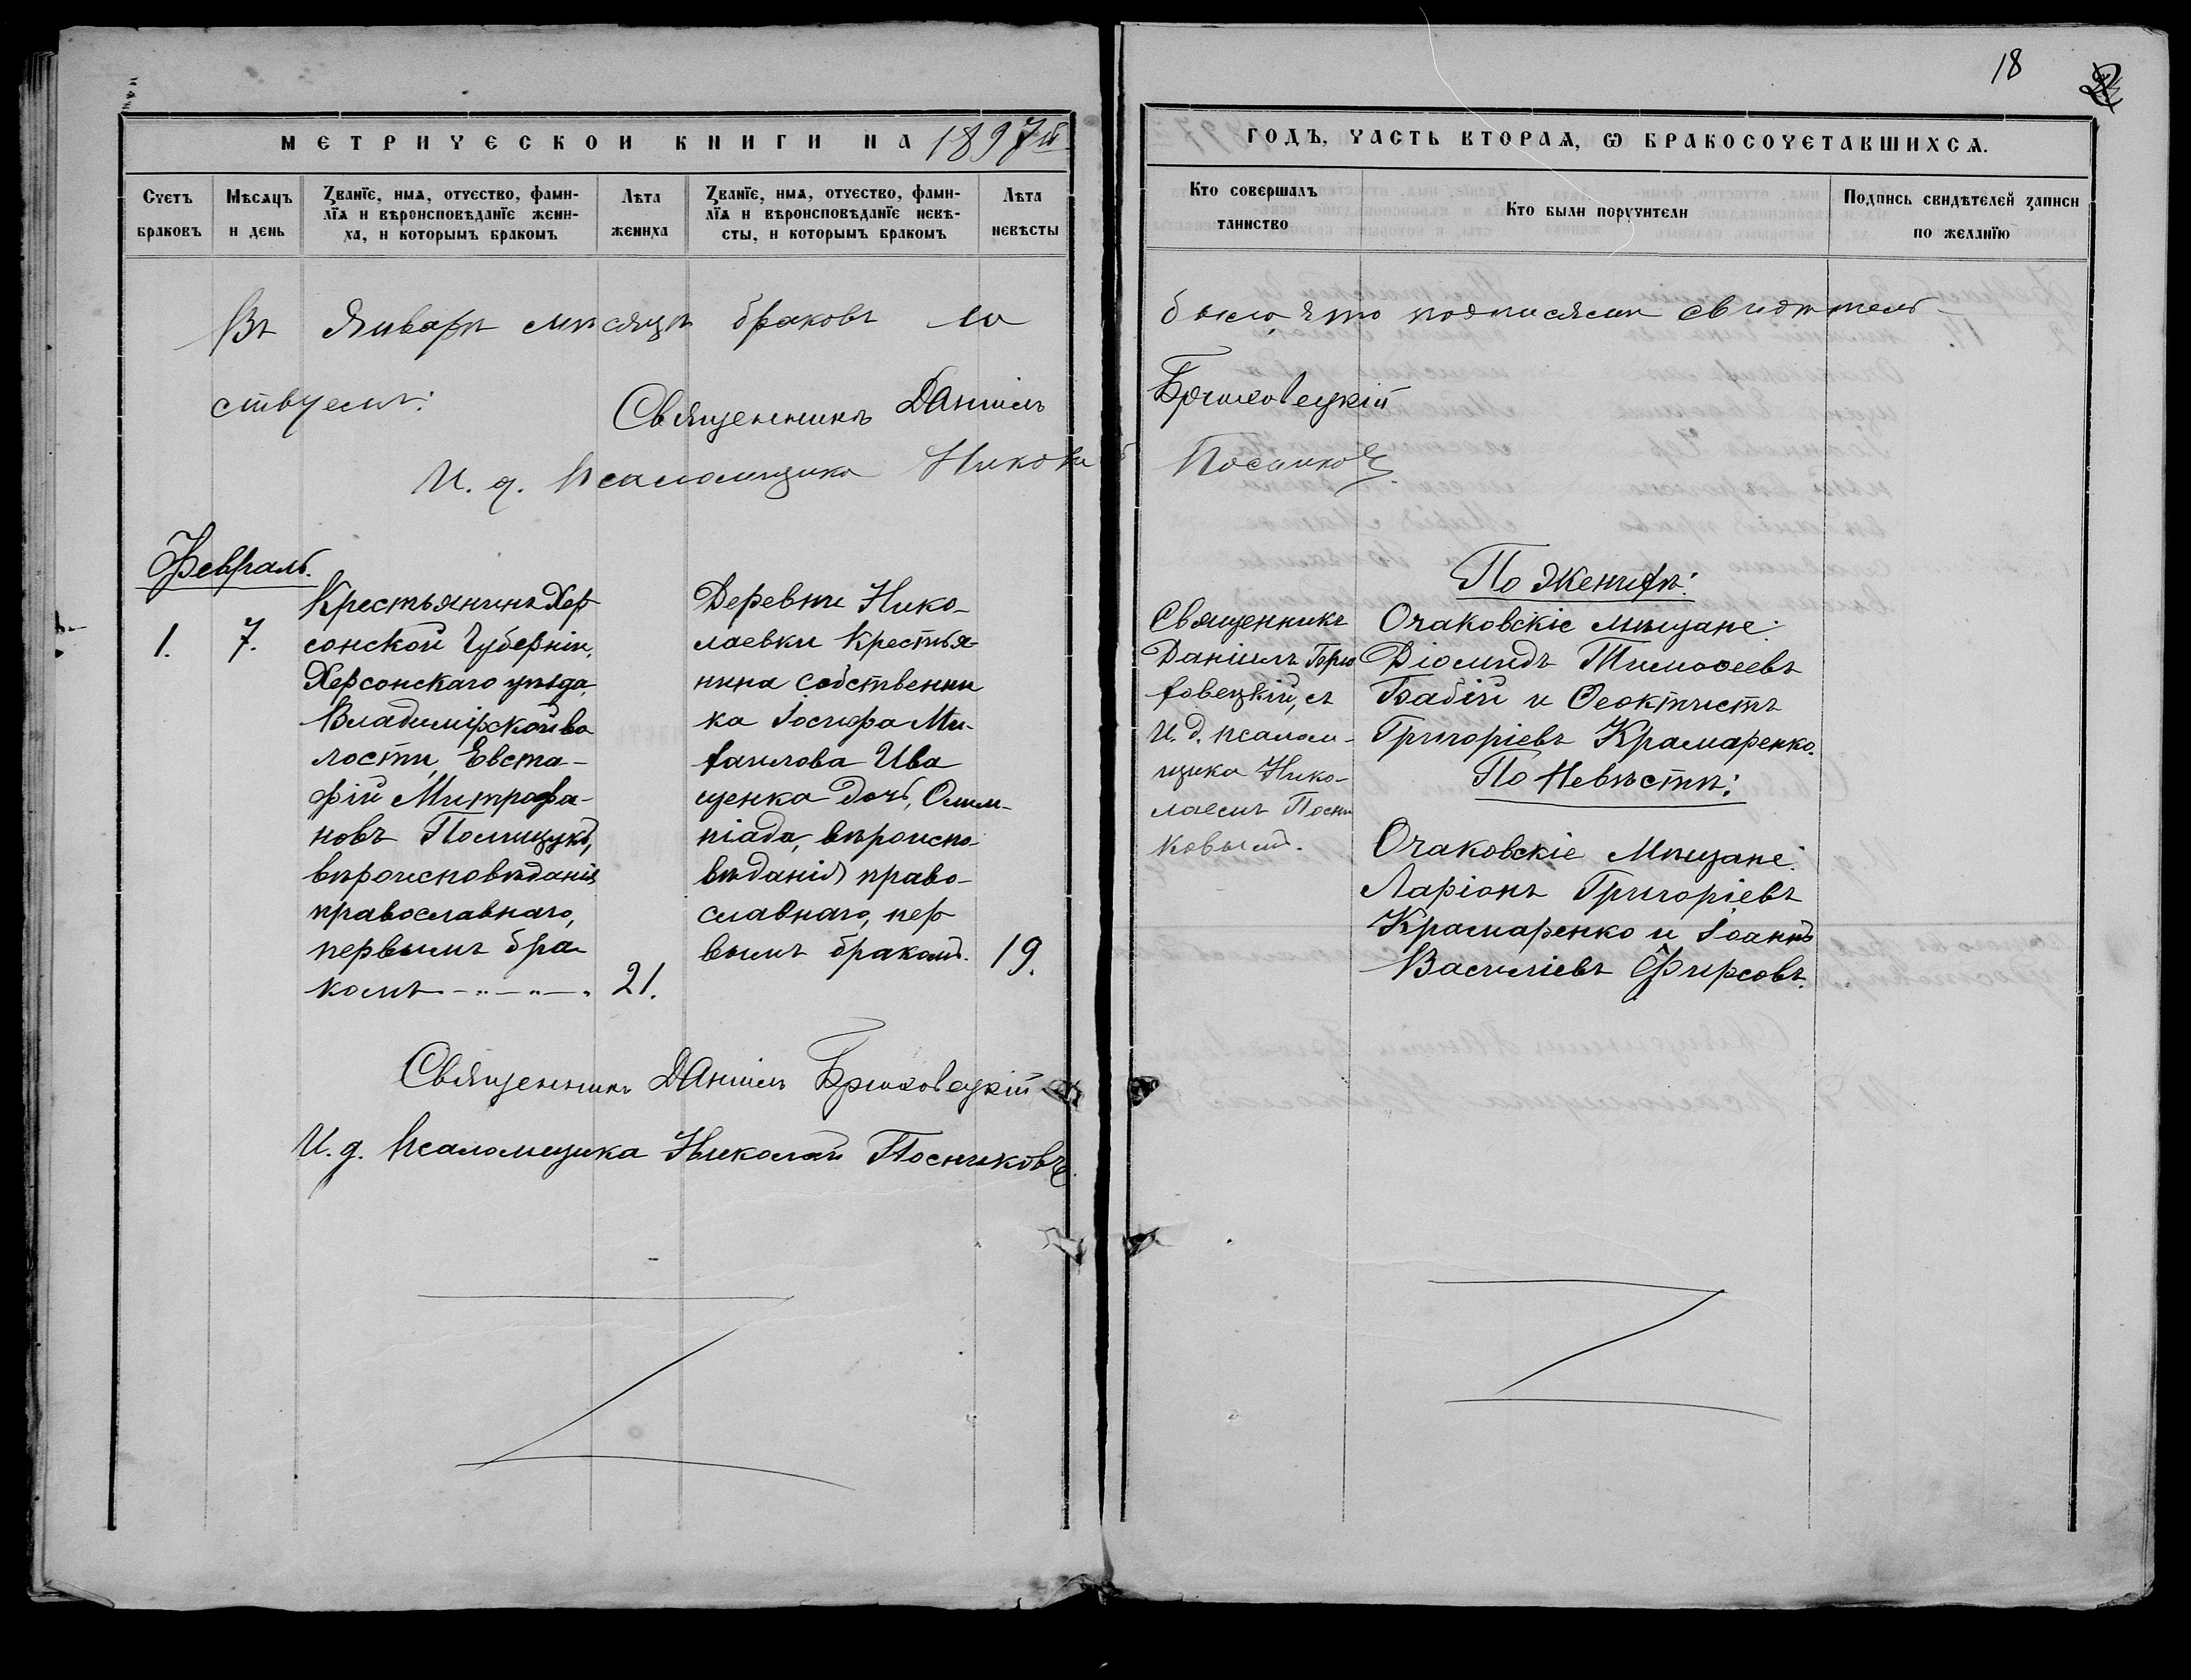 18
МЕТРИЧЕСКОЙ КНИГИ НА 1897й
ГОДЪ, ЧАСТЬ ВТОРАЯ, Ѡ БРАКОСОЧЕТАВШИХСЯ.
Счетъ браковъ
Мѣсяцъ и день
Званїе, имя, отчество, фами-
лїя и вѣроисповѣданїе жени-
ха, и которымъ бракомъ
Лѣта жениха
Званїе, имя, отчество, фами-
лїя и вѣроисповѣданїе невѣ-
сты, и которымъ бракомъ
Лѣта невѣсты
Кто совершалъ
таинство
Кто были поручители
Подпись свидѣтелей записи
по желанїю
Въ Январѣ мѣсяцѣ браковъ не было, что подписями свидѣтель-
ствуемъ:
Священникъ Даніилъ Брюховецкій
И. д. Псаломщика Николай Посниковъ
Февраль.
1.
7.
Крестьянинъ Хер-
сонской Губерніи,
Херсонскаго уѣзда,
Владимірской во
лости, Евста-
фій Митрофа-
новъ Полищукъ,
вѣроисповѣданія
православнаго,
первымъ бра
комъ
21.
Деревни Нико-
лаевки Крестья
нина собственни
ка Іосифа Ми-
хаилова Ива
щенка дочь, Олим-
піада, вѣроиспо-
вѣданія право-
славнаго, пер
вымъ бракомъ.
19.
Священникъ
Даніилъ Брю
ховецкій, съ
И. д. псалом-
щика Нико-
лаемъ Посни
ковымъ.
По Женихѣ:
Очаковскіе мѣщане:
Діомидъ Тимоѳеевъ
Бабій и Ѳеоктистъ
Григоріевъ Крамаренко.
По Невѣстѣ:
Очаковскіе Мѣщане:
Ларіонъ Григоріевъ
Крамаренко и Іоаннъ
Василіевъ Фирсовъ.
Священникъ Даніилъ Брюховецкій
И. д. Псаломщика Николай Посниковъ.